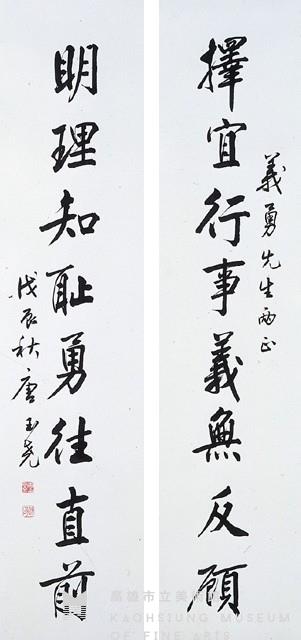 義勇先生兩正
擇宜行事義無反顧
明理知恥勇往直前
戊辰秋唐玉堯
高雄市立美
KAOHSIUNG MUSEUM
OF FINE ARTS